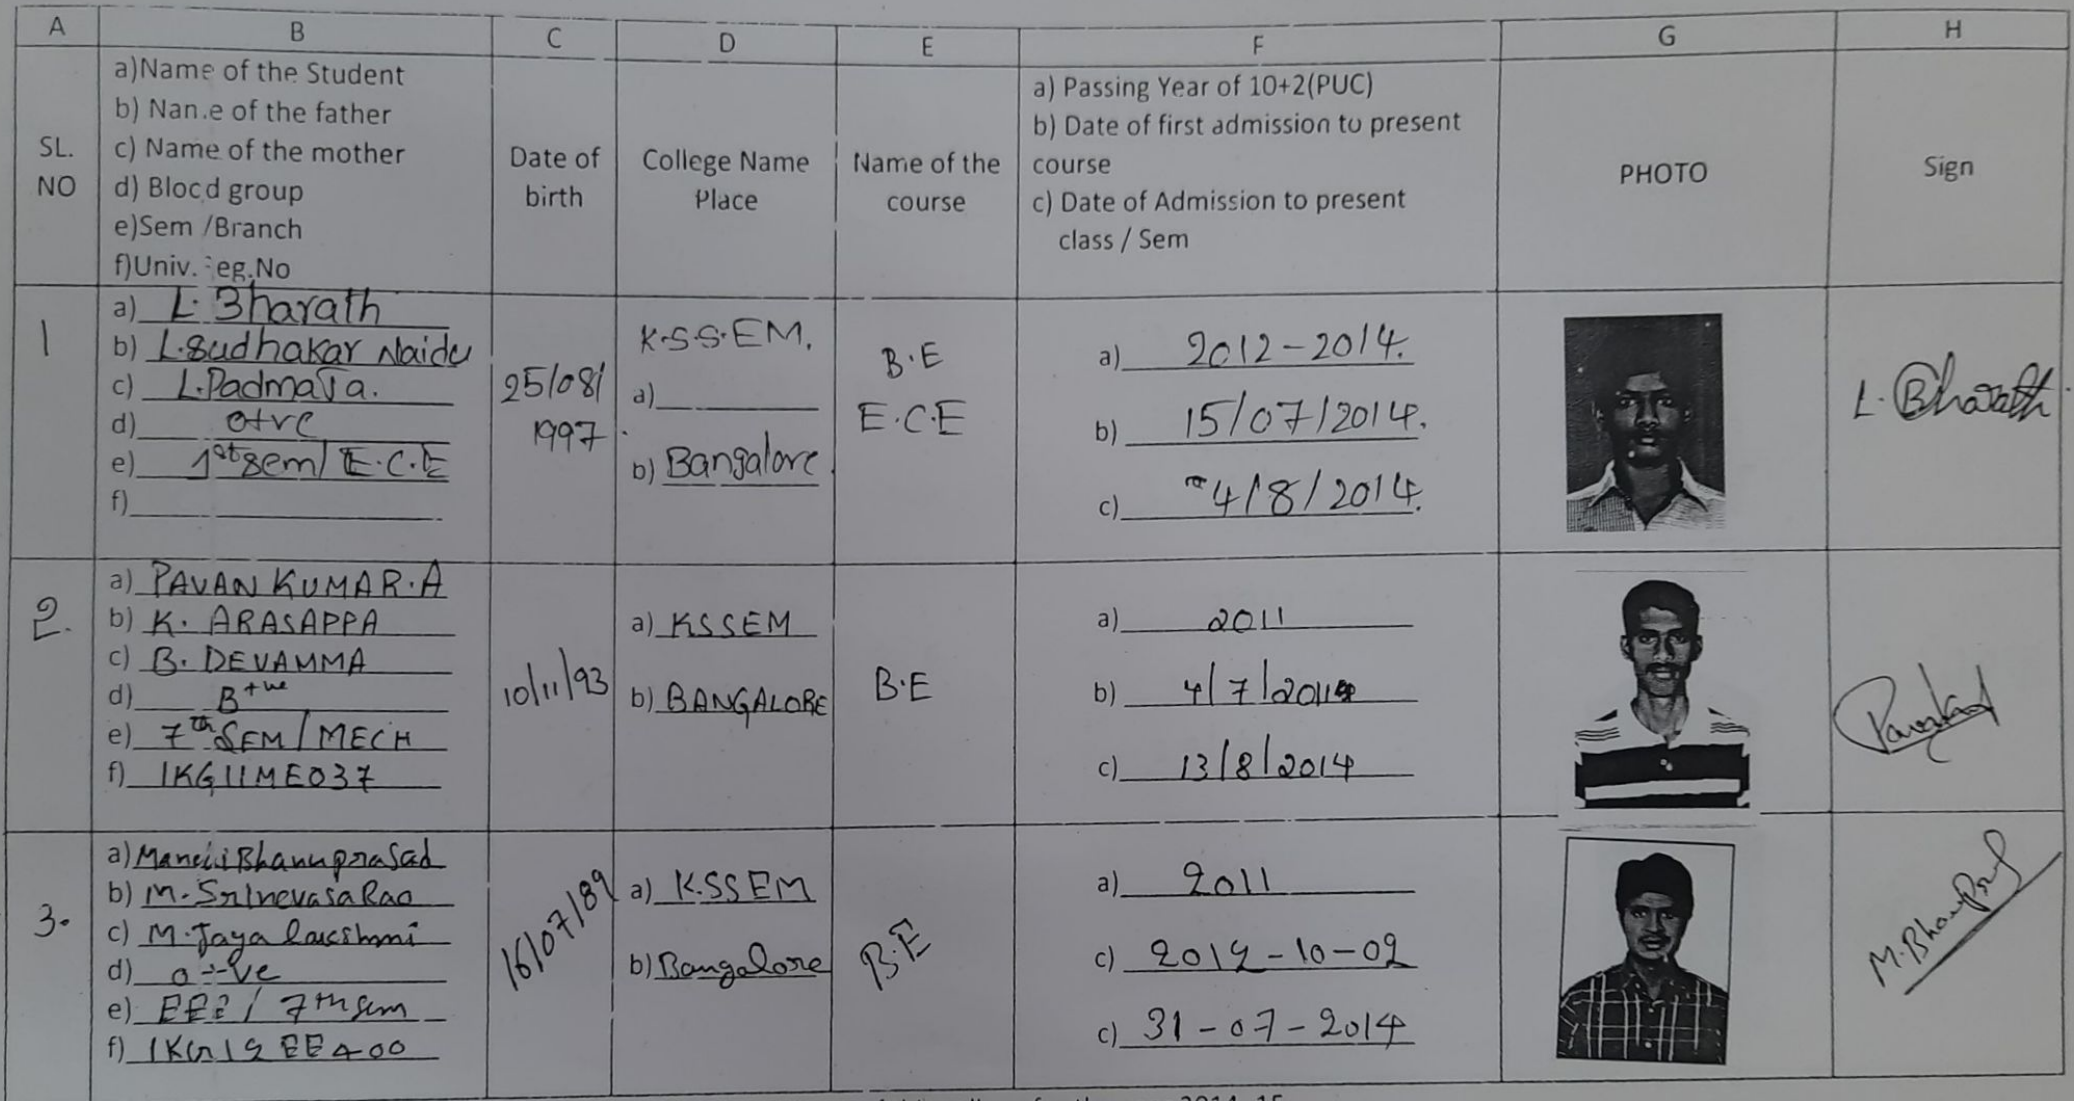 A B C D E F G H
SL. NO
a)Name of the Student
b) Nan.e of the father
c) Name of the mother
d) Blocd group
e)Sem /Branch
f)Univ. eg.No
Date of
birth
College Name
Place
Name of the
course
a) Passing Year of 10+2(PUC)
b) Date of first admission to present
course
c) Date of Admission to present
class / Sem
PHOTO
Sign
1
a) L. Bharath
b) L. Sudhakar Naidu
c) L. Padmaja.
d) o+ve
e) 1st sem/ E.C.E
f)
25/08/
1997
K.S.S.EM.
a)
b) Bangalore
B.E
E.C.E
a) 2012-2014.
b) 15/07/2014.
c) 4/8/2014.
L. Bharath
2.
a) PAVAN KUMAR.A
b) K. ARASAPPA
c) B. DEVAMMA
d) B+ve
e) 7th SEM / MECH
f) 1KG11ME037
10/11/93
a) KSSEM
b) BANGALORE
B.E
a) 2011
b) 4/7/2014
c) 13/8/2014
3.
a) Bhanuprasad
b) M. Srinevasa Rao
c) M. Jaya lakshmi
d) o -ve
e) EEE / 7th sem
f) 1KG12EE400
16/07/89
a) K.SSEM
b) Bangalore
B.E
a) 2011
c) 2012-10-09
c) 31-07-2014
M. Bhanu